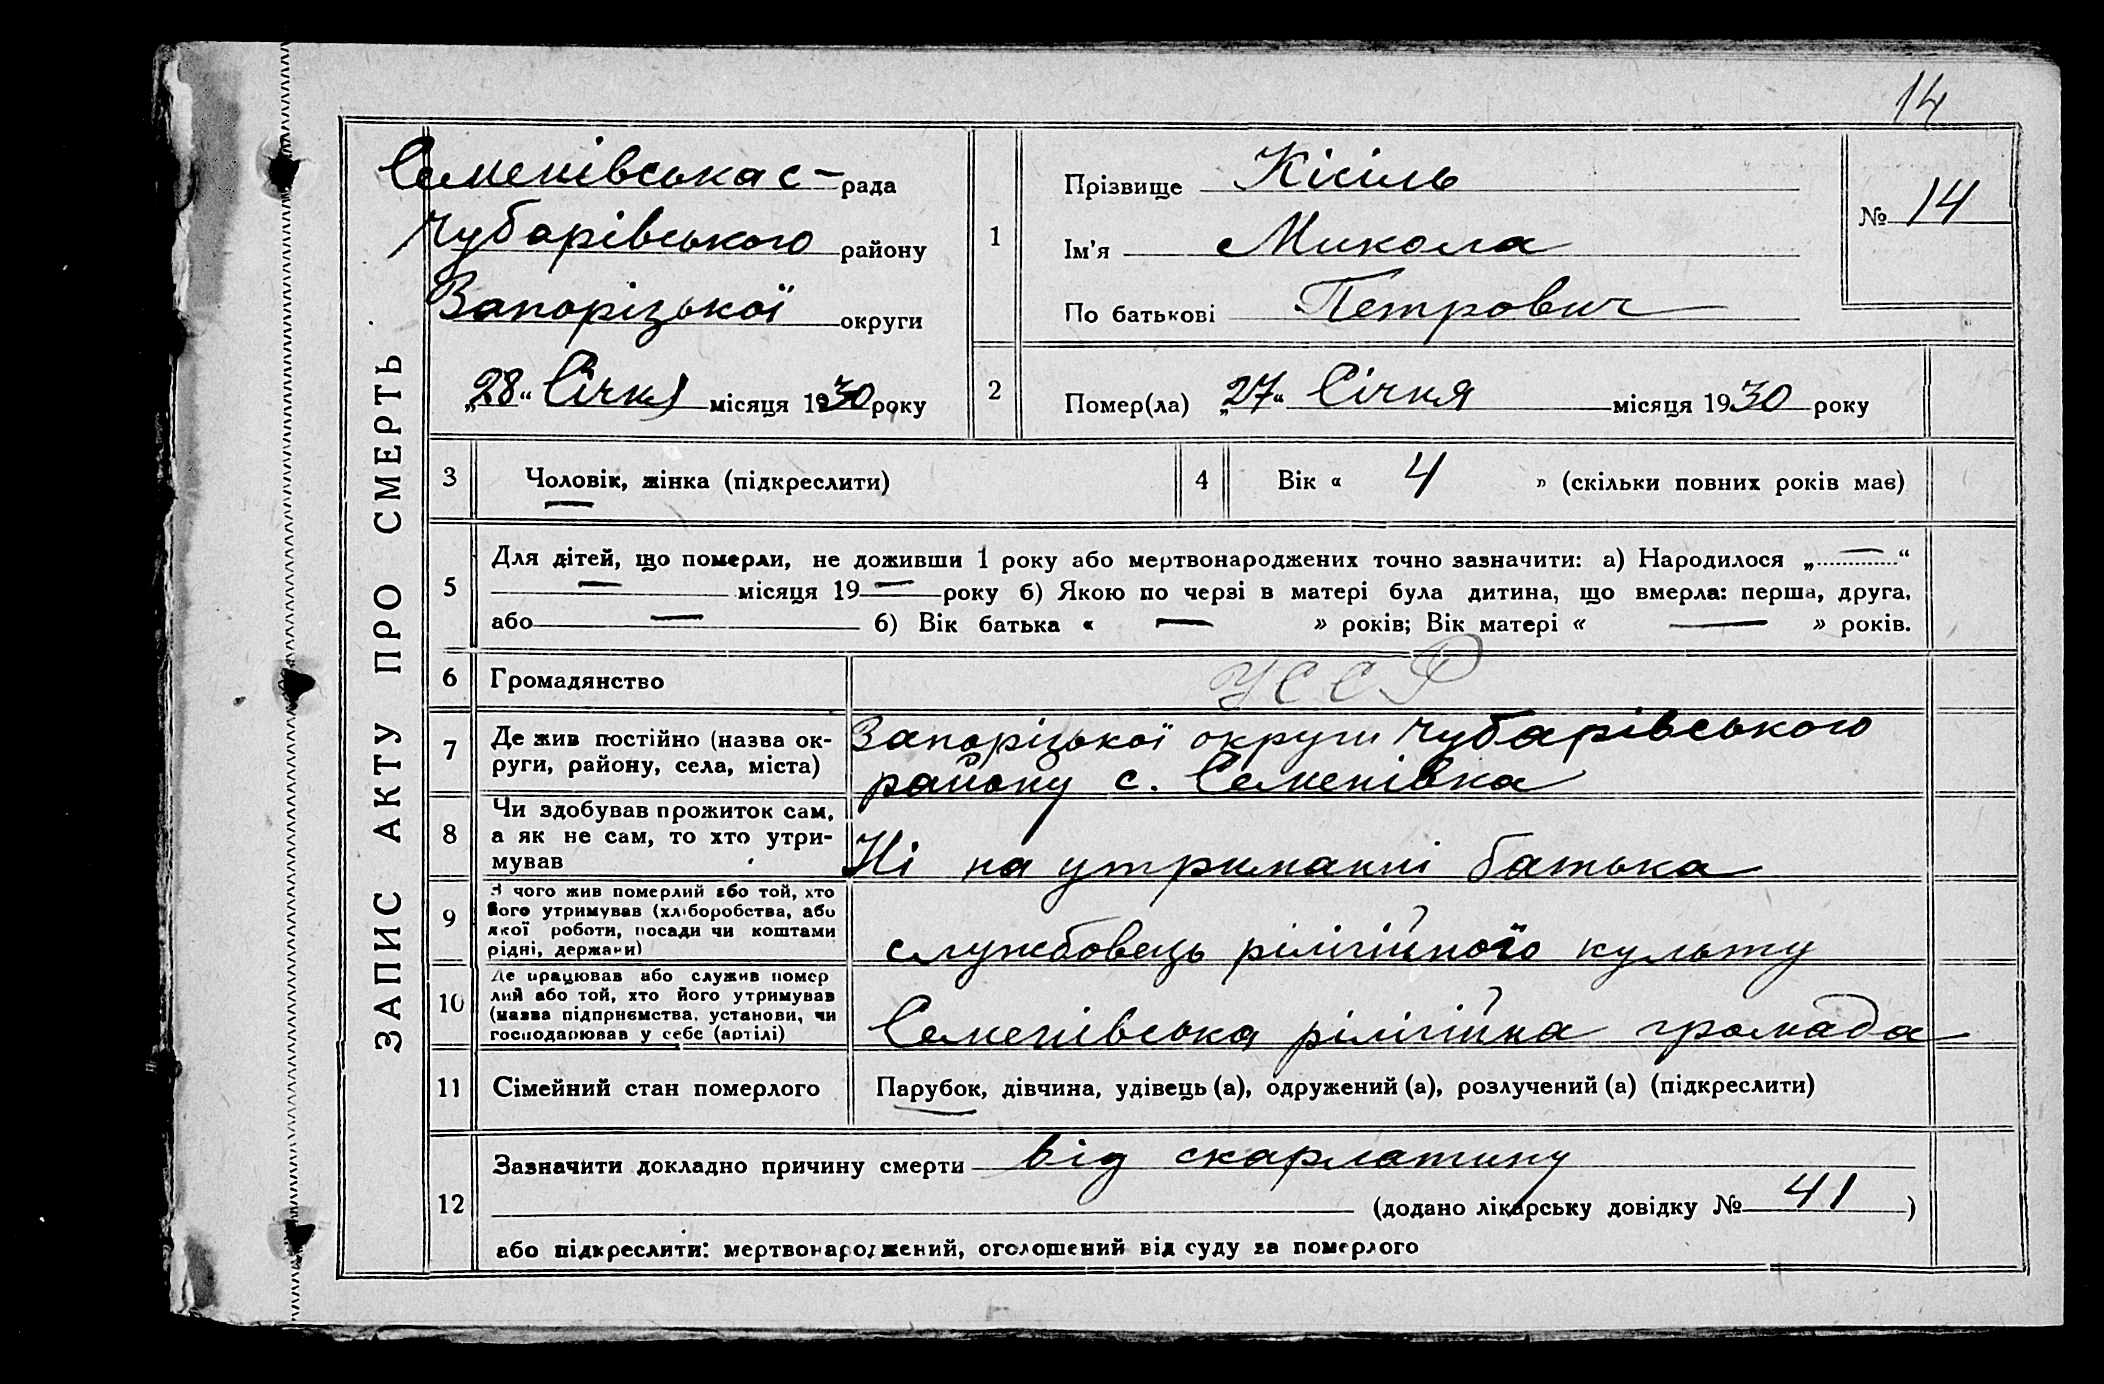 14
ЗАПИС АКТУ ПРО СМЕРТЬ
Семенівська с-рада
Чубарівського району
Запорізької округи
„28“ Січня місяця 1930 року
1
Прізвище Кісіль
Ім'я Микола
По батькові Петрович
№ 14
2
Помер(ла) „27“ Січня місяця 1930 року
3 Чоловік, жінка (підкреслити)
4 Вік « 4 » (скільки повних років має)
5
Для дітей, що померли, не доживши 1 року або мертвонароджених точно зазначити: а) Народилося „—“
— місяця 19— року б) Якою по черзі в матері була дитина, що вмерла: перша, друга,
або — б) Вік батька « — » років; Вік матері « — » років.
6 Громадянство УССР
7
Де жив постійно (назва ок-
руги, району, села, міста)
Запоріцької округи Чубарівського
району с. Семенівка
8
Чи здобував прожиток сам,
а як не сам, то хто утри-
мував
Ні на утриманні батька
9
З чого жив померлий або той, хто
його утримував (хліборобства, або
якої роботи, посади чи коштами
рідні, держави)
службовець рілігійного культу
10
Де працював або служив помер
лий або той, хто його утримував
(назва підприємства, установи, чи
господарював у себе (артілі)
Семенівська рілігійна громада
11 Сімейний стан померлого
Парубок, дівчина, удівець (а), одружений (а), розлучений (а) (підкреслити)
12
Зазначити докладно причину смерти від скарлатину
(додано лікарську довідку № 41)
або підкреслити: мертвонароджений, оголошений від суду за померлого